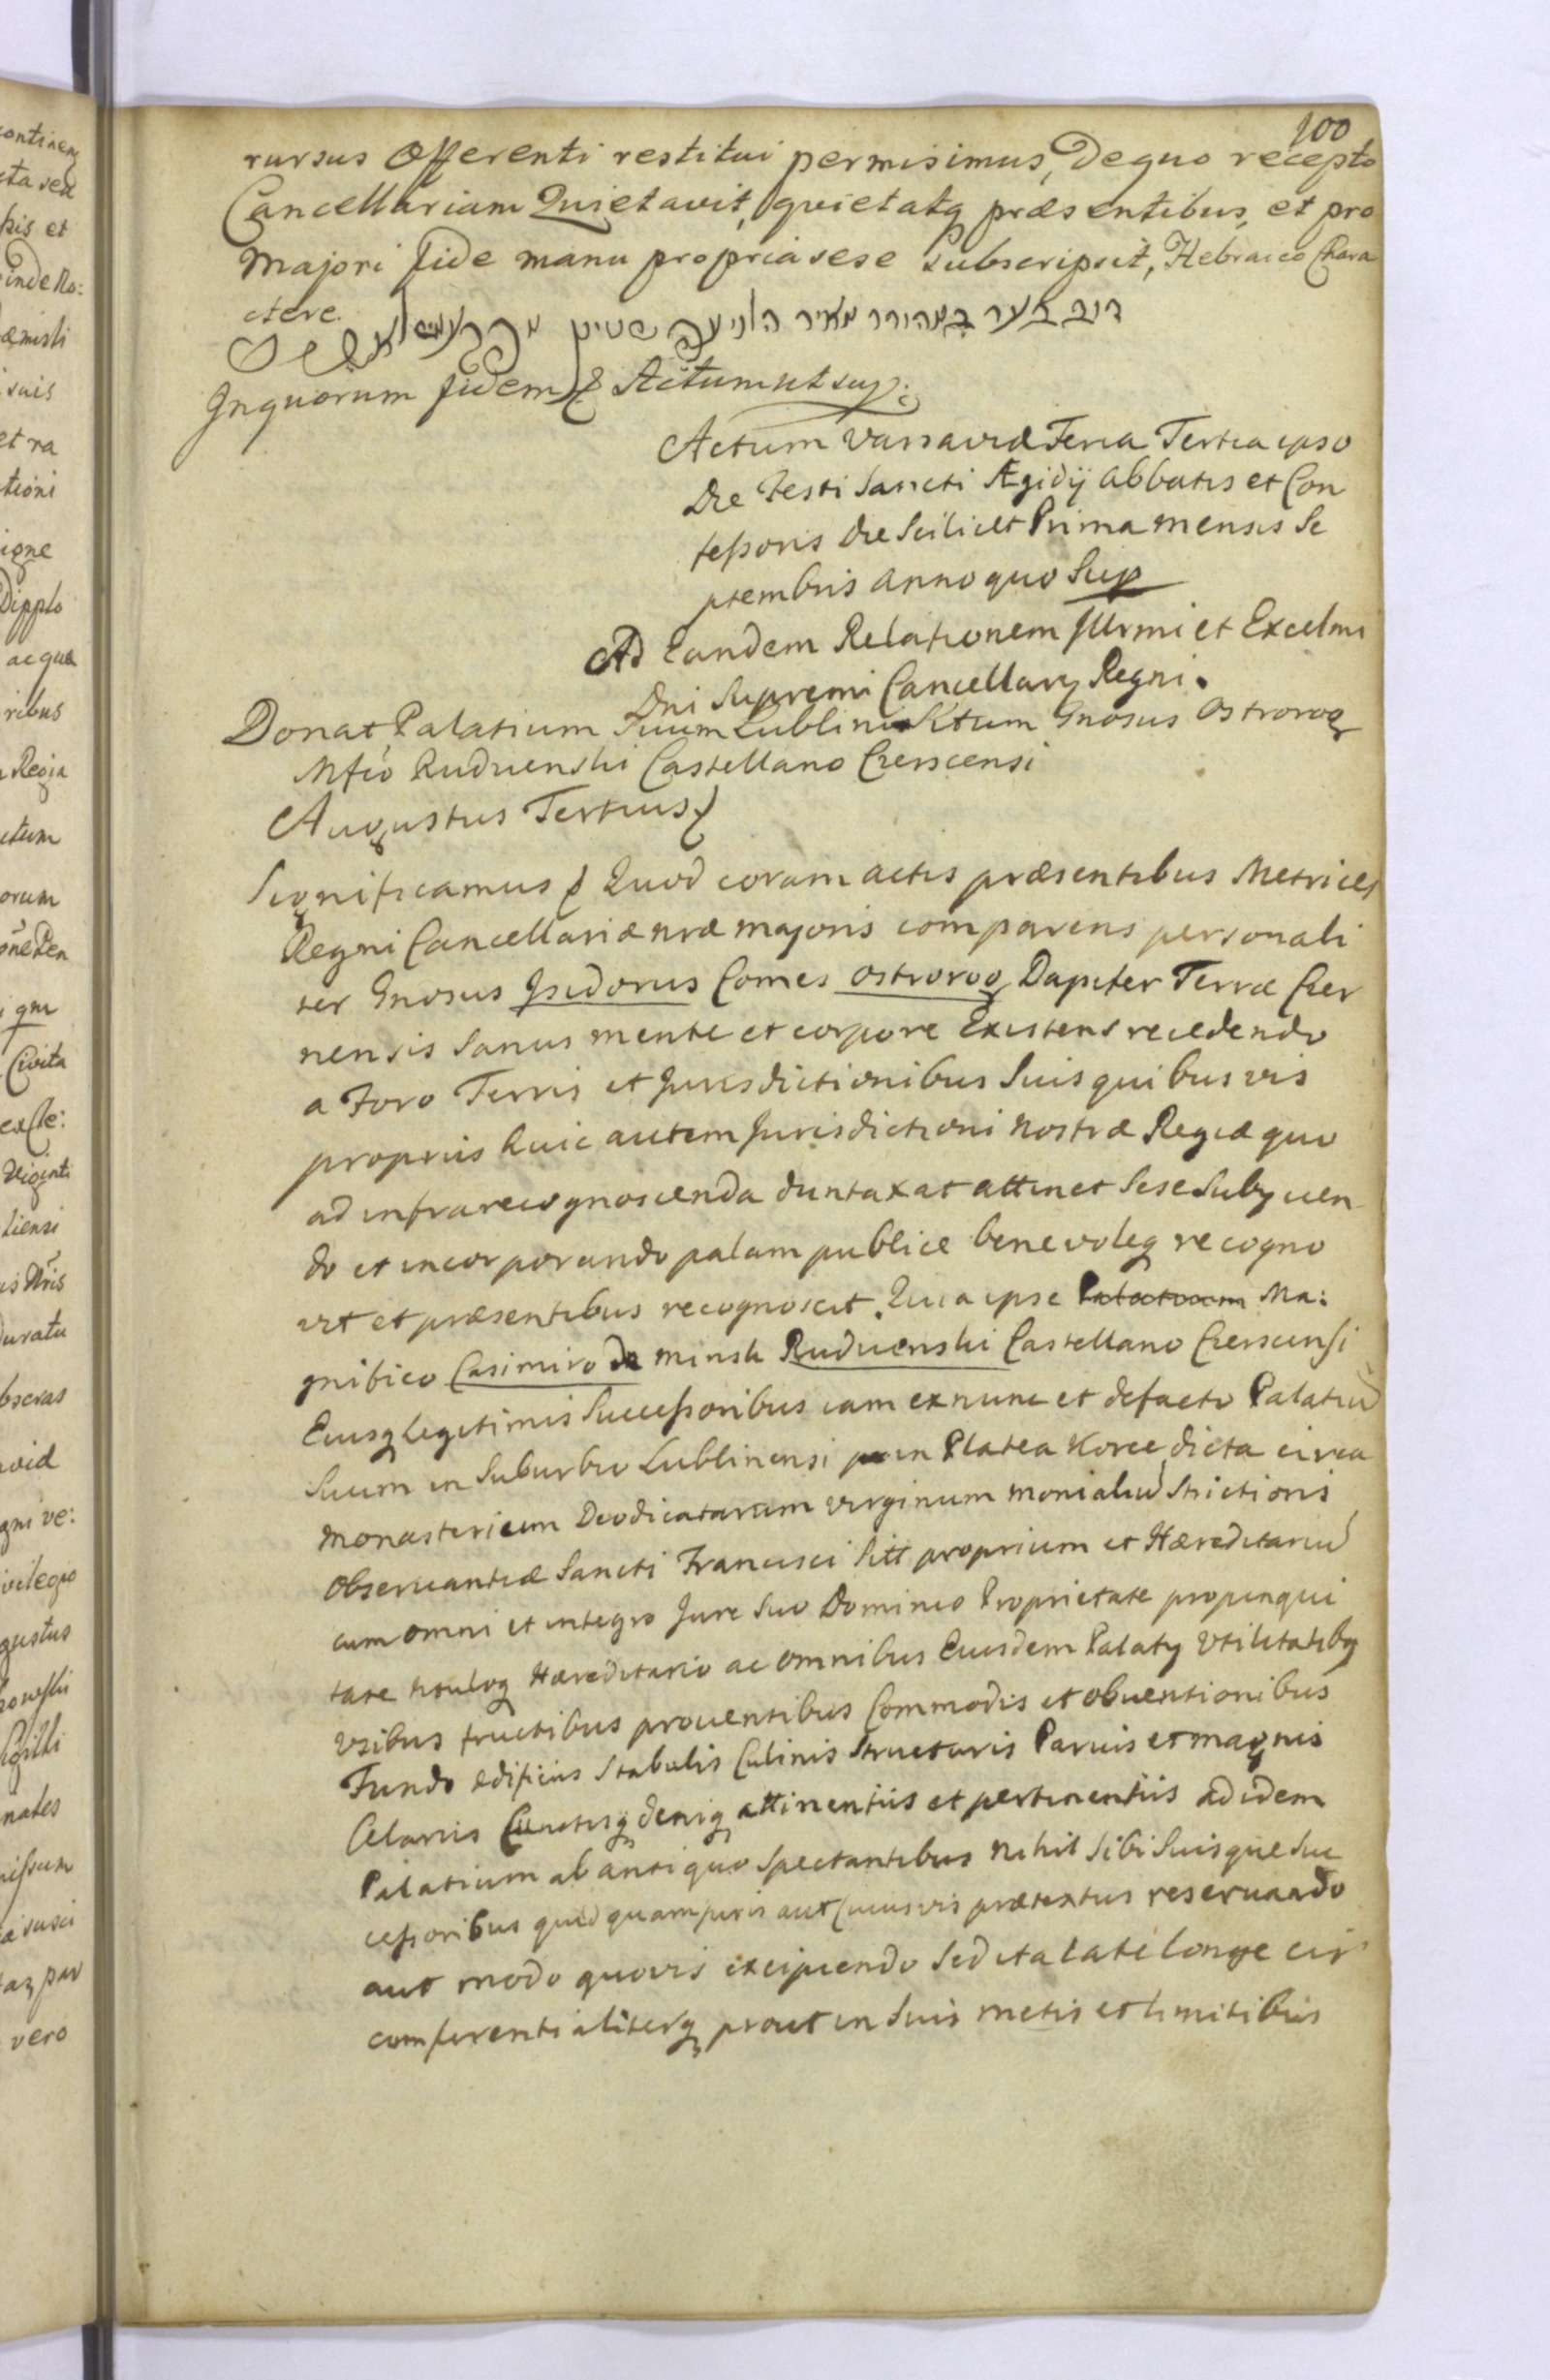 100
rursus Offerenti restitui permisimus, De quo recepto
Cancellariam Quietavit, quietatq præsentibus, et pro
Majori fide manu propria sese subscripsit, Hebraico Chara
ctere. דוב בער במהורר מאיר
Inquorum fidem Actum ut sup:
Actum Varsaviæ Feria Tertia ipso
Die Festi Sancti Ægidij Abbatis et Con
feßoris Die Scilicet Prima mensis Se
ptembris anno quo Sup
Ad Eandem Relationem Illrmi et Excelmi
Dni Supremi Cancellary Regni.
Donat Palatium Suum Lublini Situm Gnosus Ostrorog
Mfco Rudienski Castellano Czerscensi
Augustus Tertius
Significamus Quod coram actis præsentibus Metrices
Regni Cancellariæ nræ majoris comparens personali
ter Gnosus Isidorus Comes Ostrorog Dapifer Terræ Czer
nensis Sanus mente et corpore Existens recedendo
a Foro Terris et Jurisdictionibus Suis quibusvis
propriis huic autem Jurisdictioni Nostræ Regiæ quo
ad infrarecognoscenda duntaxat attinet Sese Subycien
do et incorporando palam publice benevoleq recogno
vit et præsentibus recognoscit. Quia ipse Palatium Ma:
gnifico Casimiro de Minsk Rudienski Castellano Czerscensi
Eiusq legitimis Succeßoribus iam exnunc et defacto Palatiu
Suum in Suburbio Lublinensi in Platea Korce dicta circa
monasterium Deodicatarum virginum monialiu Strictioris
Observantiæ Sancti Francisci Sitt proprium et Hæreditariu
cum omni et integro Jure Suo Dominio Proprietate propinqui
tate tituloq Hæreditario ac omnibus Eiusdem Palaty Vtilitatibq
Vsibus fructibus proventibus Commodis et obventionibus
Fundo ædificiis Stabulis Culinis Structuris Parvis et magnis
Celariis Cunctisq deniq attinentiis et pertinentiis ad idem
Palatium ab antiquo Spectantibus Nihil Sibi Suisque Suc
ceßoribus quidquam juris aut Cuiusvis prætextus reservando
aut modo quovis excipiendo Sed ita laté longe cir
comferentialiterq prout in Suis metis et limitibus